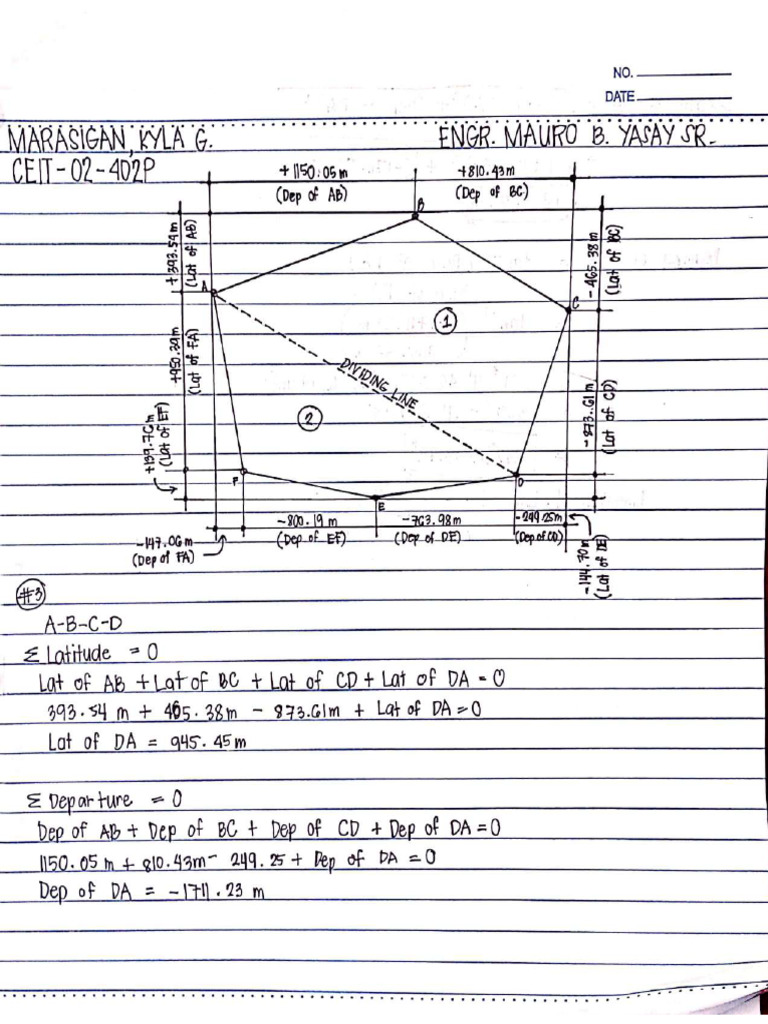 NO.
DATE
MARASIGAN, KYLA G. ENGR. MAURO B. YASAY SR.
CEIT-02-402P
+1150.05m +810.43m
(Dep of AB) (Dep of BC)
B
+393.54m
(Lat of AB)
-465.38m
(Lat of BC)
A
C
1
+950.39m
(Lat of FA)
DIVIDING LINE
-873.61m
(Lat of CD)
2
+139.76m
(Lat of EF)
F
D
E
-800.19m -763.98m -249.25m
(Dep of EF) (Dep of DE) (Dep of CD)
-147.06m
(Dep of FA)
-144.70m
(Lat of DE)
#3
A-B-C-D
Σ Latitude = 0
Lat of AB + Lat of BC + Lat of CD + Lat of DA = 0
393.54 m + 465.38m - 873.61m + Lat of DA = 0
Lat of DA = 945.45m
Σ Departure = 0
Dep of AB + Dep of BC + Dep of CD + Dep of DA = 0
1150.05 m + 810.43m - 249.25 + Dep of DA = 0
Dep of DA = -1711.23 m